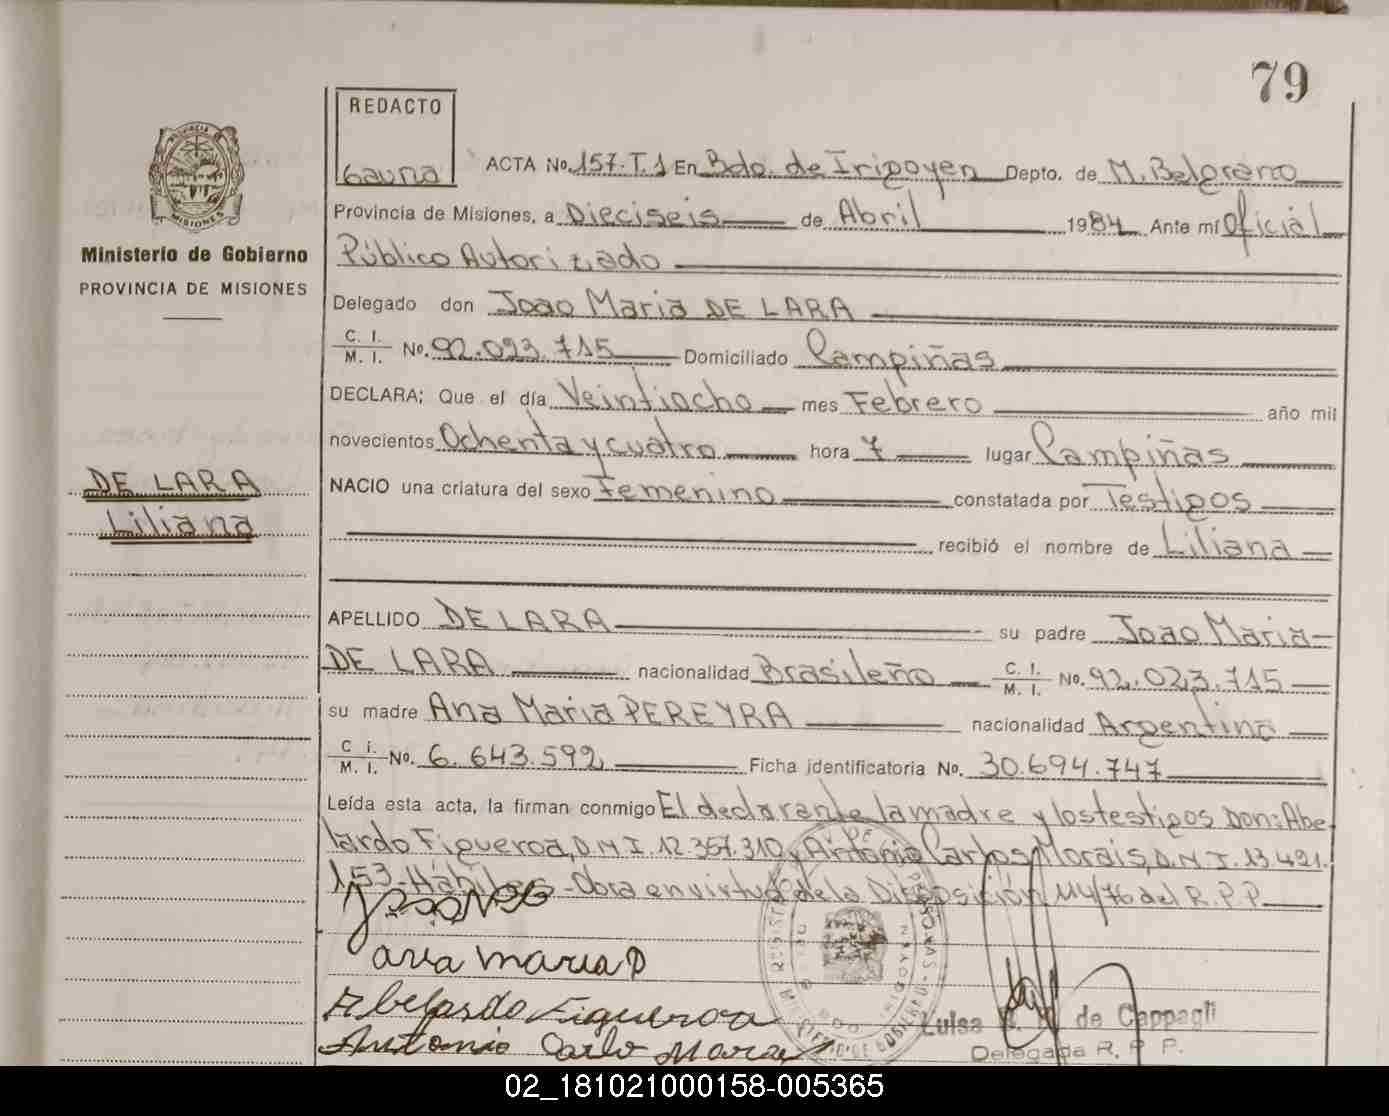 79
REDACTO
Gauna
ACTA No. 157.T.1 En Bdo. de Irigoyen Depto. de M. Belgrano
Provincia de Misiones, a Dieciseis de Abril 1984 Ante mí Oficial
Público Autorizado
Delegado don Joao Maria DE LARA
C. I.
M. I. No. 92.023.715 Domiciliado Campiñas
DECLARA; Que el día Veintiocho mes Febrero año mil
novecientos Ochenta y cuatro hora 7 lugar Campiñas
NACIO una criatura del sexo Femenino constatada por Testigos
recibió el nombre de Liliana
APELLIDO DE LARA su padre Joao Maria
DE LARA nacionalidad Brasileño C. I. M. I. No. 92.023.715
su madre Ana Maria PEREYRA nacionalidad Argentina
C. I. M. I. No. 6.643.592 Ficha identificatoria No. 30.694.747
Leída esta acta, la firman conmigo El declarante la madre y los testigos Don: Abe-
lardo Figueroa, D.N.I. 12.357.310 y Antonio Carlos Morais, D.N.I. 13.421.
153-Hábiles-Obra en virtud de la Disposición 114/76 del R.P.P.
ana maria P
Abelardo Figueroa
Antonio Carlo Morais
Luisa de Cappagli
Delegada R. P. P.
PROVINCIA DE
MISIONES
Ministerio de Gobierno
PROVINCIA DE MISIONES
DE LARA
Liliana
02_181021000158-005365